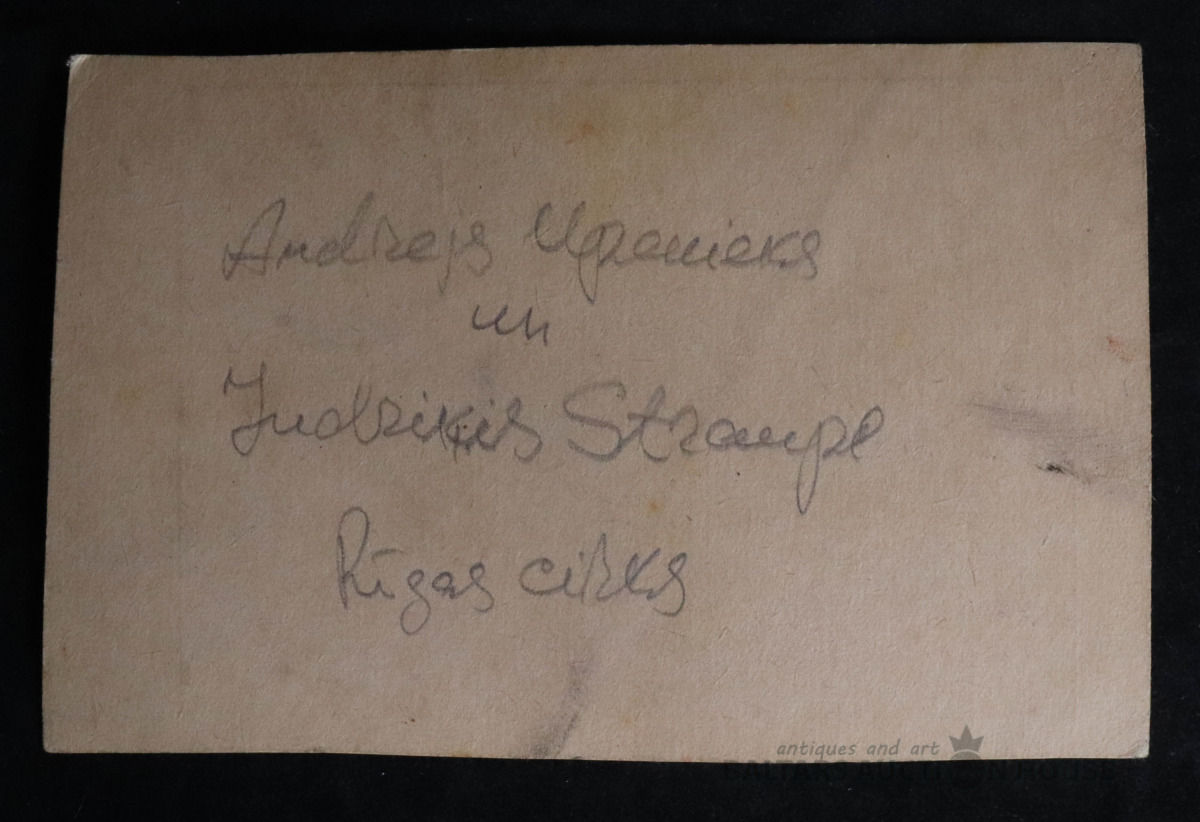 Andrejs Ugrenieks
un
Indriķis Strampe
Rīgas cirks
antiques and art
BALTARS AUCTION HOUSE